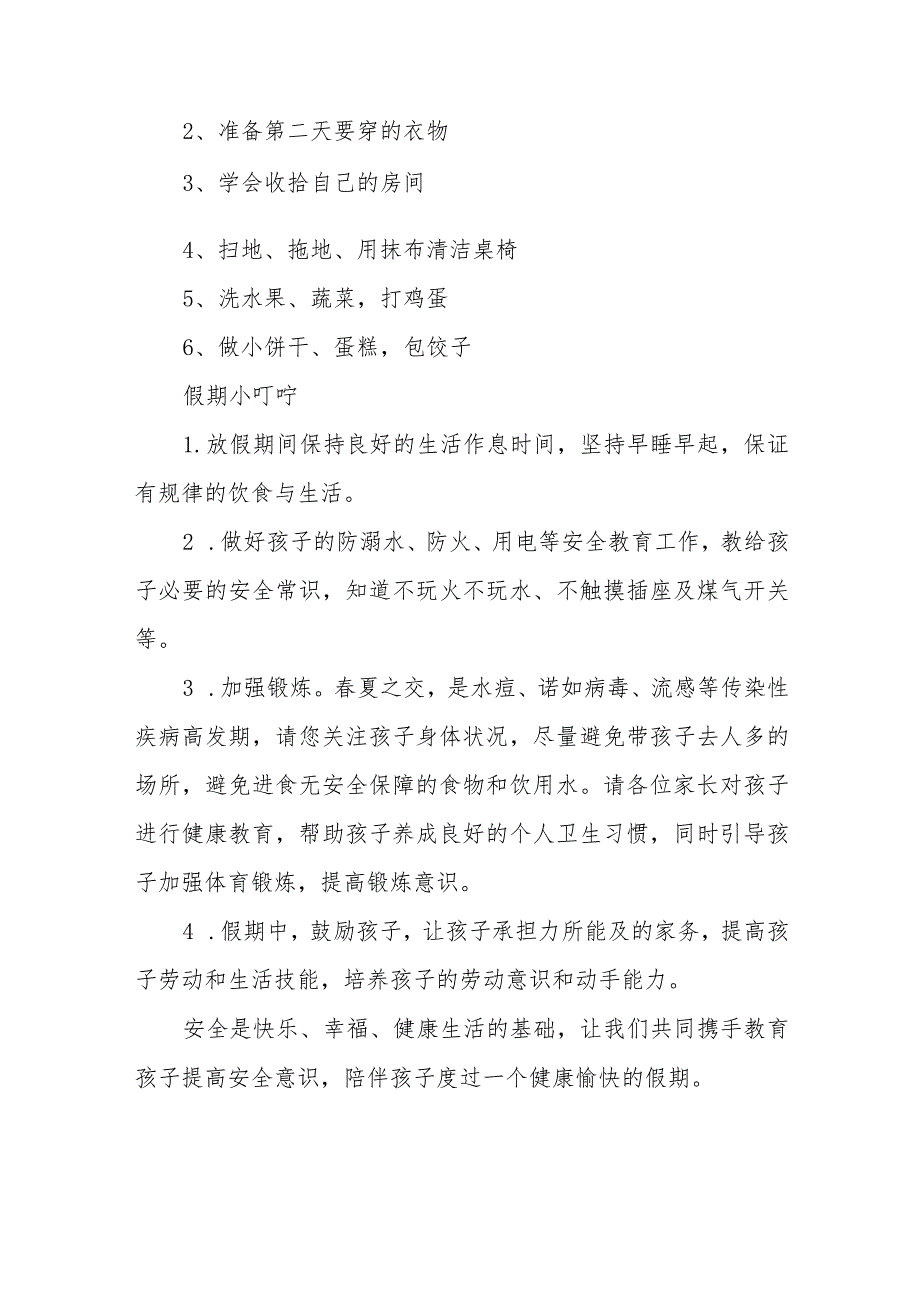 2、准备第二天要穿的衣物
3、学会收拾自己的房间
4、扫地、拖地、用抹布清洁桌椅
5、洗水果、蔬菜，打鸡蛋
6、做小饼干、蛋糕，包饺子
假期小叮咛
1.放假期间保持良好的生活作息时间，坚持早睡早起，保证
有规律的饮食与生活。
2 .做好孩子的防溺水、防火、用电等安全教育工作，教给孩
子必要的安全常识，知道不玩火不玩水、不触摸插座及煤气开关
等。
3 .加强锻炼。春夏之交，是水痘、诺如病毒、流感等传染性
疾病高发期，请您关注孩子身体状况，尽量避免带孩子去人多的
场所，避免进食无安全保障的食物和饮用水。请各位家长对孩子
进行健康教育，帮助孩子养成良好的个人卫生习惯，同时引导孩
子加强体育锻炼，提高锻炼意识。
4 .假期中，鼓励孩子，让孩子承担力所能及的家务，提高孩
子劳动和生活技能，培养孩子的劳动意识和动手能力。
安全是快乐、幸福、健康生活的基础，让我们共同携手教育
孩子提高安全意识，陪伴孩子度过一个健康愉快的假期。